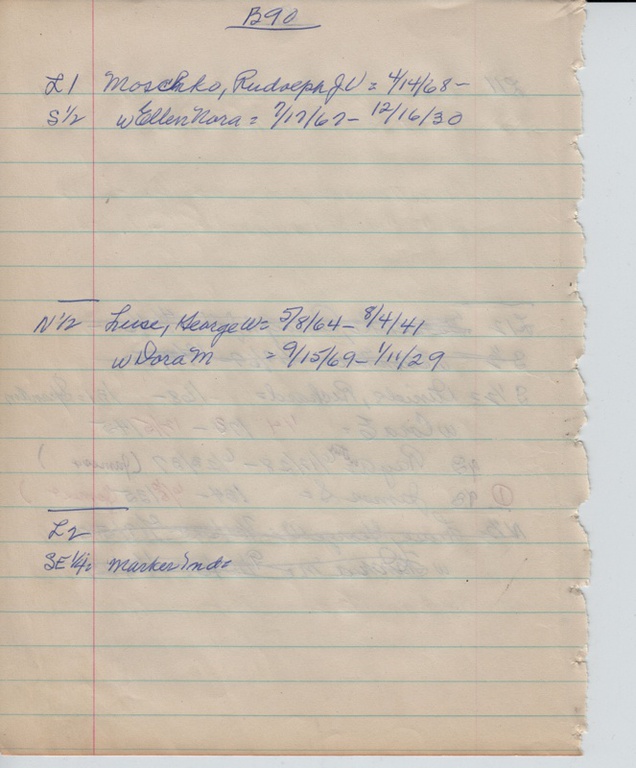 B90
L1 Moschko, Rudolph J V = 4/14/68 -
S 1/2 w Ellen Nora = 7/17/67 - 12/16/30
N 1/2 Luse, George W = 5/8/64 - 8/4/41
w Dora M = 9/15/69 - 1/11/29
L2
SE 1/4 = Marker Ind =